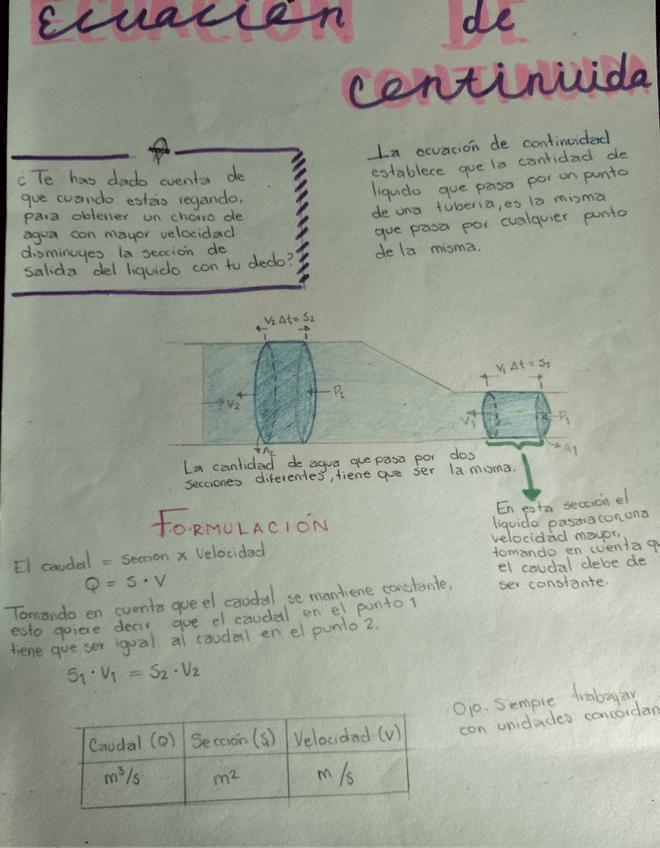 Ecuación de
continuida
¿Te has dado cuenta de
que cuando estás regando,
para obtener un chorro de
agua con mayor velocidad
disminuyes la sección de
salida del liquido con tu dedo?
La ecuación de continuidad
establece que la cantidad de
liquido que pasa por un punto
de una tubería, es la misma
que pasa por cualquier punto
de la misma.
V₂ Δt = S₂
V₂
P₂
A₂
V₁ Δt = S₁
V₁
P₁
A₁
La cantidad de agua que pasa por dos
secciones diferentes, tiene que ser la misma.
En esta sección el
liquido pasara con una
velocidad mayor,
tomando en cuenta q
el caudal debe de
ser constante.
FORMULACIÓN
El caudal = sección x velocidad
Q = S · V
Tomando en cuenta que el caudal se mantiene constante,
esto quiere decir que el caudal en el punto 1
tiene que ser igual al caudal en el punto 2.
S₁ · V₁ = S₂ · V₂
Ojo. Siempre trabajar
con unidades concordan
Caudal (Q) Sección (S) Velocidad (V)
m³/s m² m/s